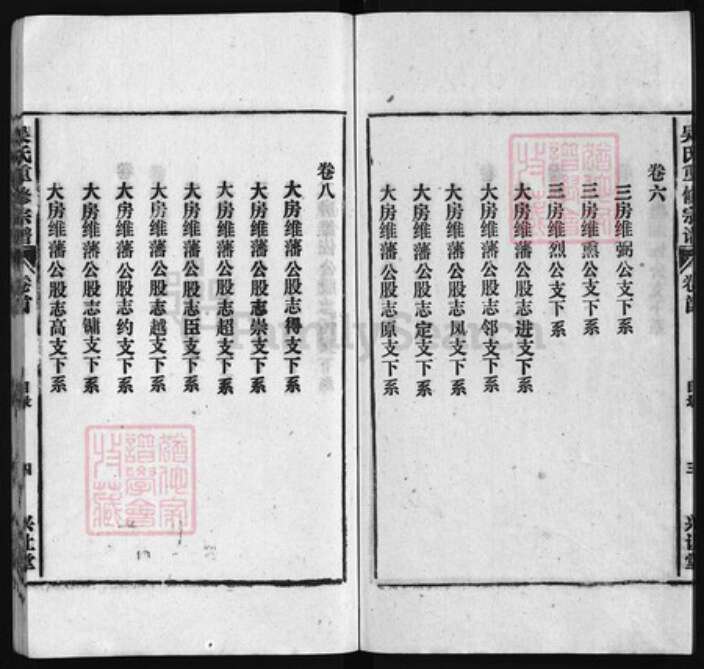 卷六
三房维弼公支下系
三房维焄公支下系
三房维烈公支下系
大房维藩公股志进支下系
大房维藩公股志邻支下系
大房维藩公股志凤支下系
大房维藩公股志定支下系
大房维藩公股志原支下系
吴氏重修宗谱
卷首
目录
三
卷八
大房维藩公股志得支下系
大房维藩公股志崇支下系
大房维藩公股志超支下系
大房维藩公股志臣支下系
大房维藩公股志越支下系
大房维藩公股志约支下系
大房维藩公股志镛支下系
大房维藩公股志高支下系
吴氏重修宗谱
卷首
目录
四
FamilySearch